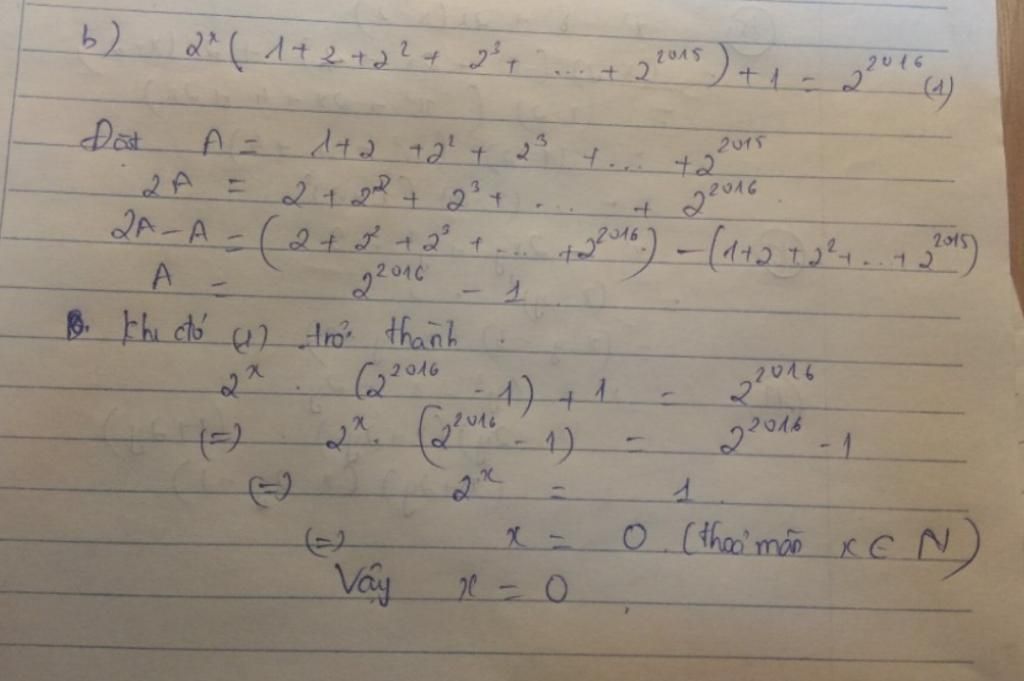 b) 2^x ( 1 + 2 + 2^2 + 2^3 + ... + 2^2015 ) + 1 = 2^2016 (1)
Đặt A = 1 + 2 + 2^2 + 2^3 + ... + 2^2015
2A = 2 + 2^2 + 2^3 + ... + 2^2016
2A - A = ( 2 + 2^2 + 2^3 + ... + 2^2016 ) - ( 1 + 2 + 2^2 + ... + 2^2015 )
A = 2^2016 - 1
Khi đó (1) trở thành
2^x . ( 2^2016 - 1 ) + 1 = 2^2016
(=) 2^x . ( 2^2016 - 1 ) = 2^2016 - 1
(=) 2^x = 1
(=) x = 0 (thoả mãn x ∈ N)
Vậy x = 0